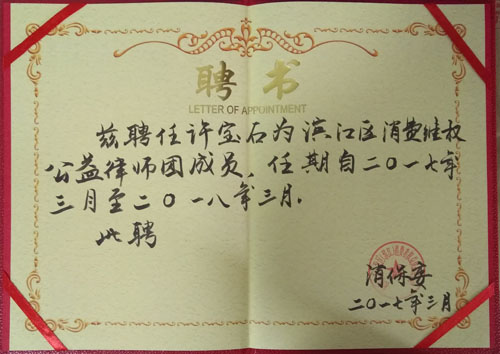 聘书
LETTER OF APPOINTMENT
兹聘任许宝石为滨江区消费维权
公益律师团成员，任期自二〇一七年
三月至二〇一八年三月.
此聘
消保委
二〇一七年三月